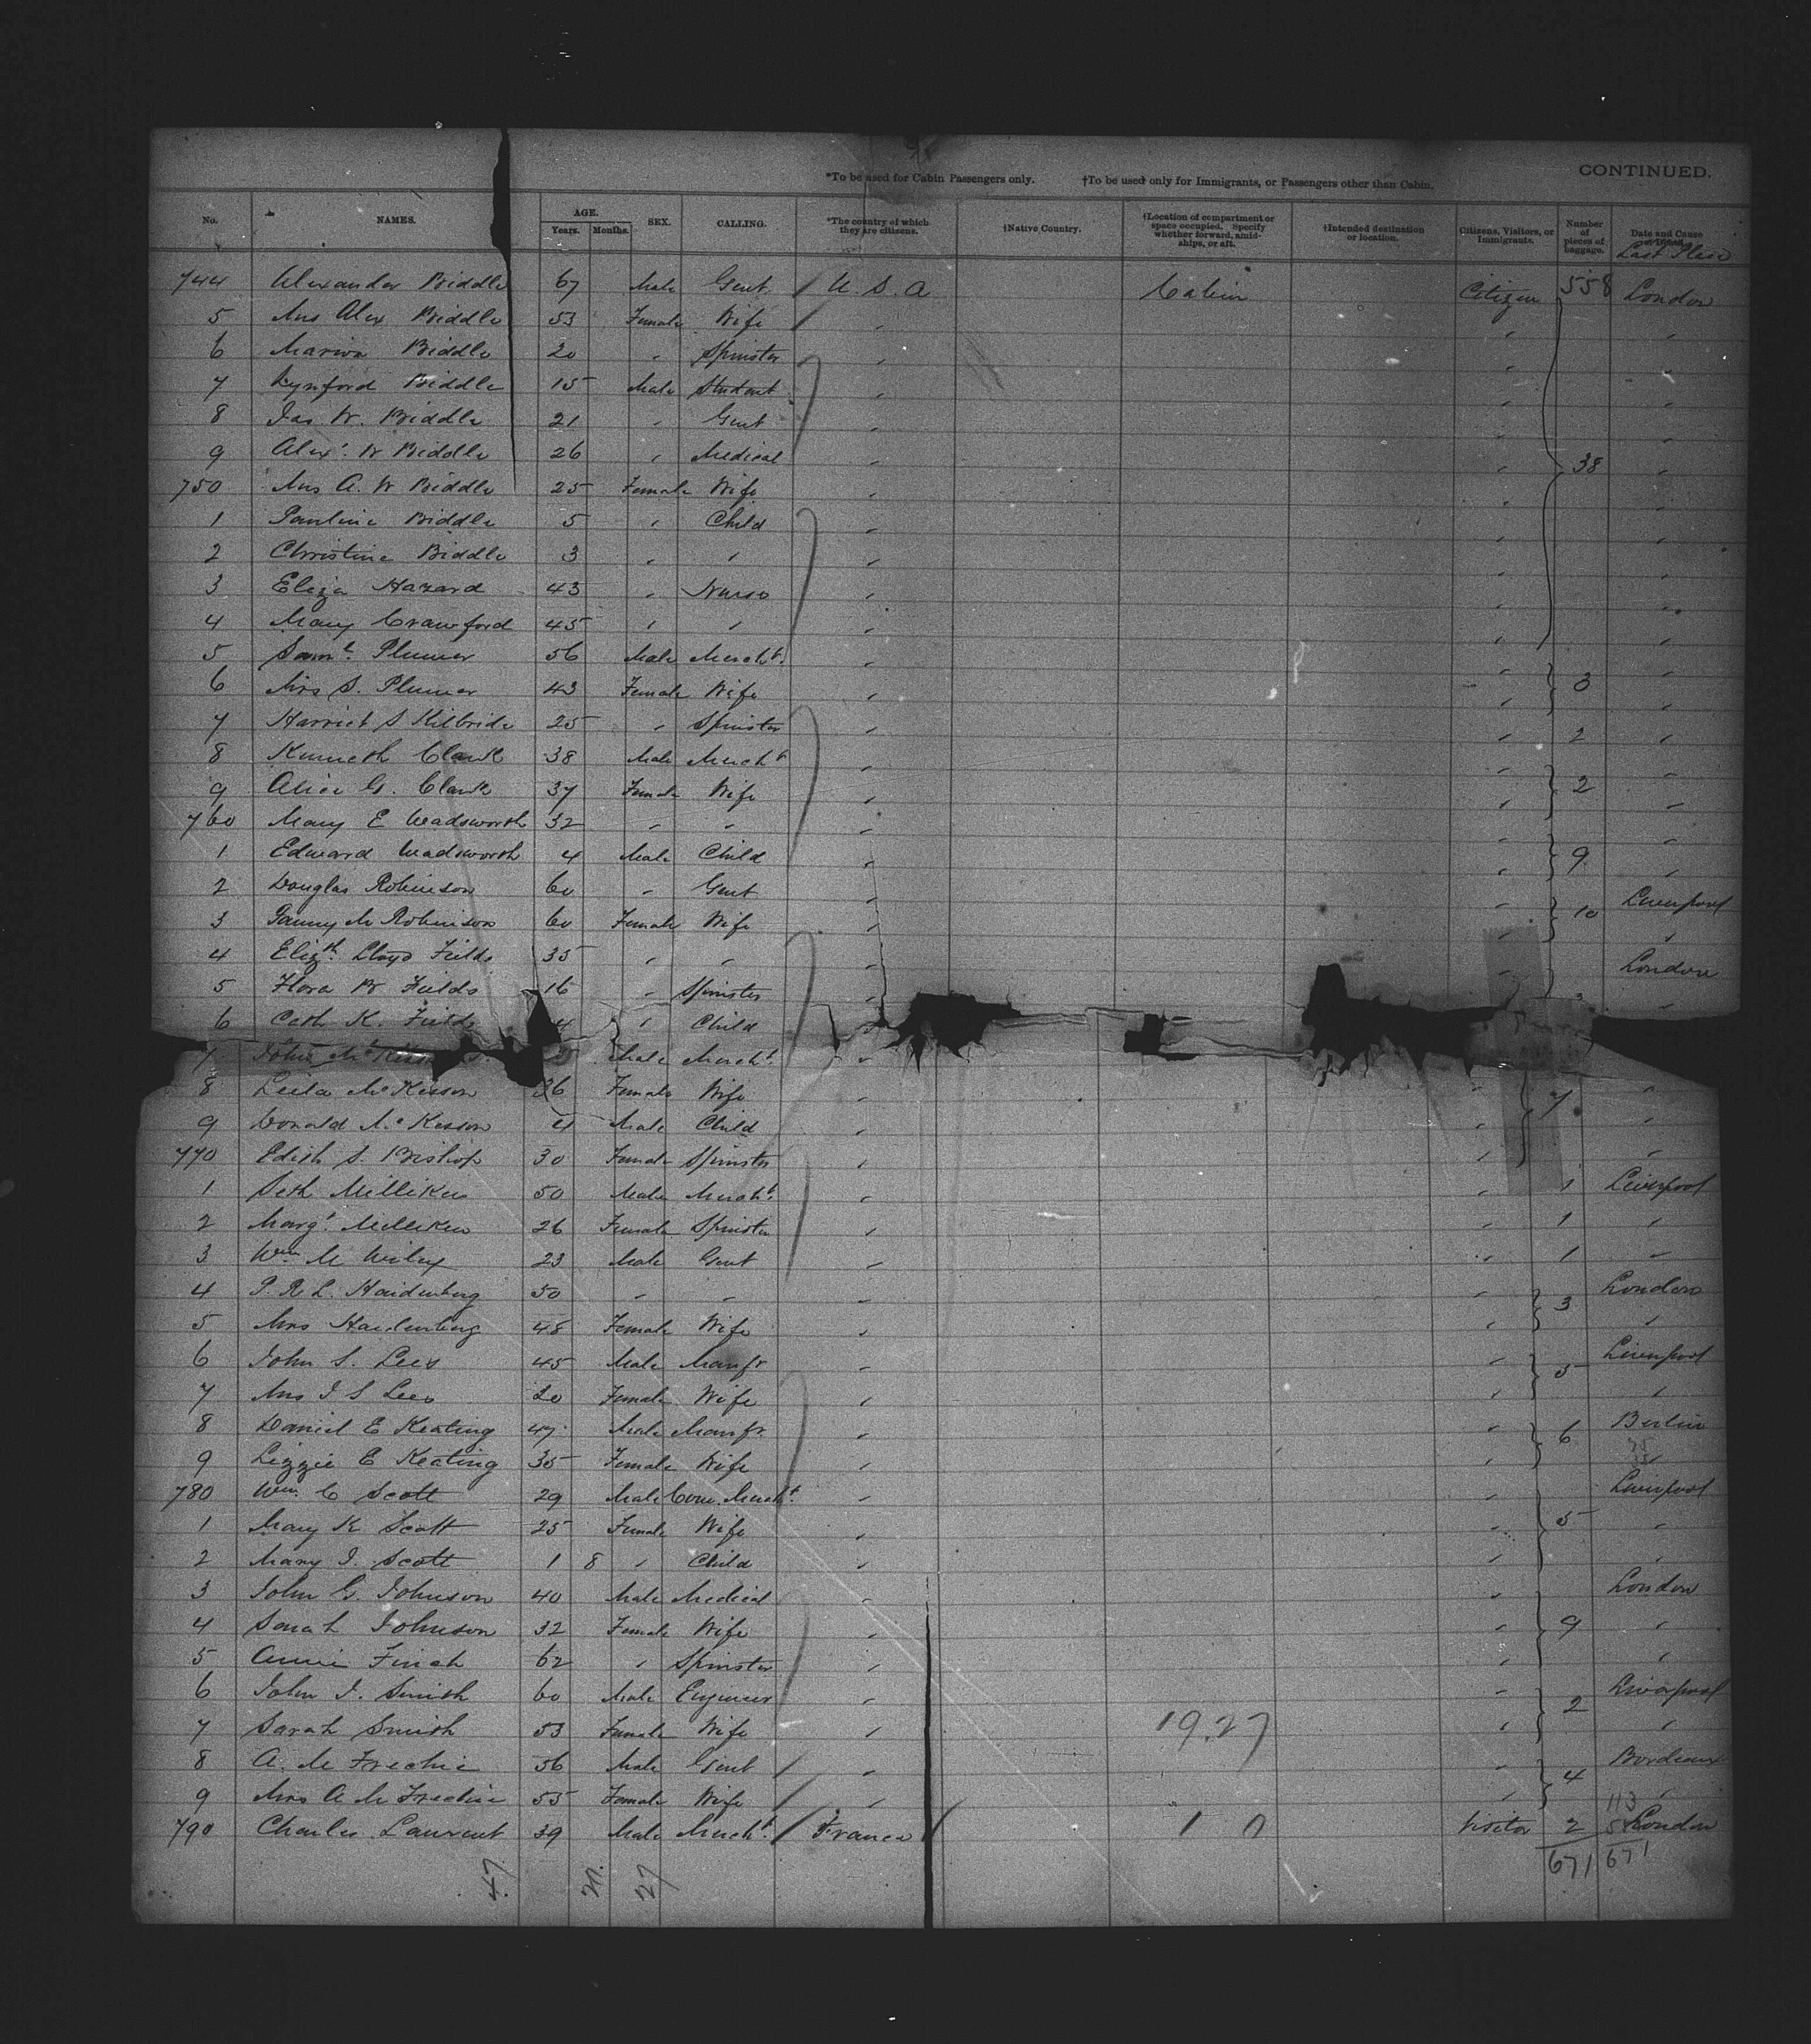 CONTINUED.
*To be used for Cabin Passengers only. †To be used only for Immigrants, or Passengers other than Cabin.
No. NAMES. AGE. Years. Months. SEX. CALLING. *The country of which they are citizens. †Native Country. †Location of compartment or space occupied. Specify whether forward, amidships, or aft. †Intended destination or location. Citizens, Visitors, or Immigrants. Number of pieces of baggage. Date and Cause
Last Place
744 Alexander Biddle 67 Male Gent. U. S. A Cabin Citizen 558 London
5 Mrs Alex Biddle 53 Female Wife " " "
6 Marion Biddle 20 " Spinster " " "
7 Lynford Biddle 15 Male Student " " "
8 Jas. W. Biddle 21 " Gent " " "
9 Alexr. W Biddle 26 " Medical " " 38 "
750 Mrs A. W Biddle 25 Female Wife " " "
1 Pauline Biddle 5 " Child " " "
2 Christine Biddle 3 " " " " "
3 Eliza Hazard 43 " Nurse " " "
4 Mary Crawford 45 " " " " "
5 Saml. Plumer 56 Male Mercht. " " "
6 Mrs S. Plumer 43 Female Wife " " 3 "
7 Harriet S Kilbride 25 " Spinster " " 2 "
8 Kenneth Clark 38 Male Mercht " " "
9 Alice G. Clark 37 Female Wife " " 2 "
760 Mary E Wadsworth 32 " " " " "
1 Edward Wadsworth 4 Male Child " " 9 "
2 Douglas Robinson 60 " Gent " " Liverpool
3 Fanny M Robinson 60 Female Wife " " 10 "
4 Elizth. Lloyd Fields 35 " " " " London
5 Flora B Fields 16 " Spinster " "
6 Cath K. Fields 4 " Child
7 John Mc Male Mercht. "
8 Leila McKesson 36 Female Wife " " 7 "
9 Donald McKesson 4 Male Child " " "
770 Edith S. Bishop 30 Female Spinster " " "
1 Seth Milliken 50 Male Mercht. " " 1 Liverpool
2 Margt. Milliken 26 Female Spinster " " 1 "
3 Wm. M Wiley 23 Male Gent " " 1 "
4 P. R. L. Hardenberg 50 " " " " London
5 Mrs Hardenberg 48 Female Wife " " 3 "
6 John S. Lees 45 Male Manfr " " Liverpool
7 Mrs J. S Lees 20 Female Wife " " 5 "
8 Daniel E Keating 47 Male Manfr. " " Berlin
9 Lizzie E Keating 35 Female Wife " " 6 "
780 Wm. C Scott 29 Male Com. Mercht. " " Liverpool
1 Mary K Scott 25 Female Wife " " 5 "
2 Mary J. Scott 1 8 " Child " " "
3 John G. Johnson 40 Male Medical " " London
4 Sarah Johnson 32 Female Wife " " 9 "
5 Annie Finch 62 " Spinster " " "
6 John J. Smith 60 Male Engineer " " Liverpool
7 Sarah Smith 53 Female Wife " 19.27 " 2 "
8 A. M Frechie 56 Male Gent " " Bordeaux
9 Mrs A M Frechie 55 Female Wife " " 4 "
113
790 Charles Laurent 39 Male Mercht. France 1 0 Visitor 2 London
47 27 671 671